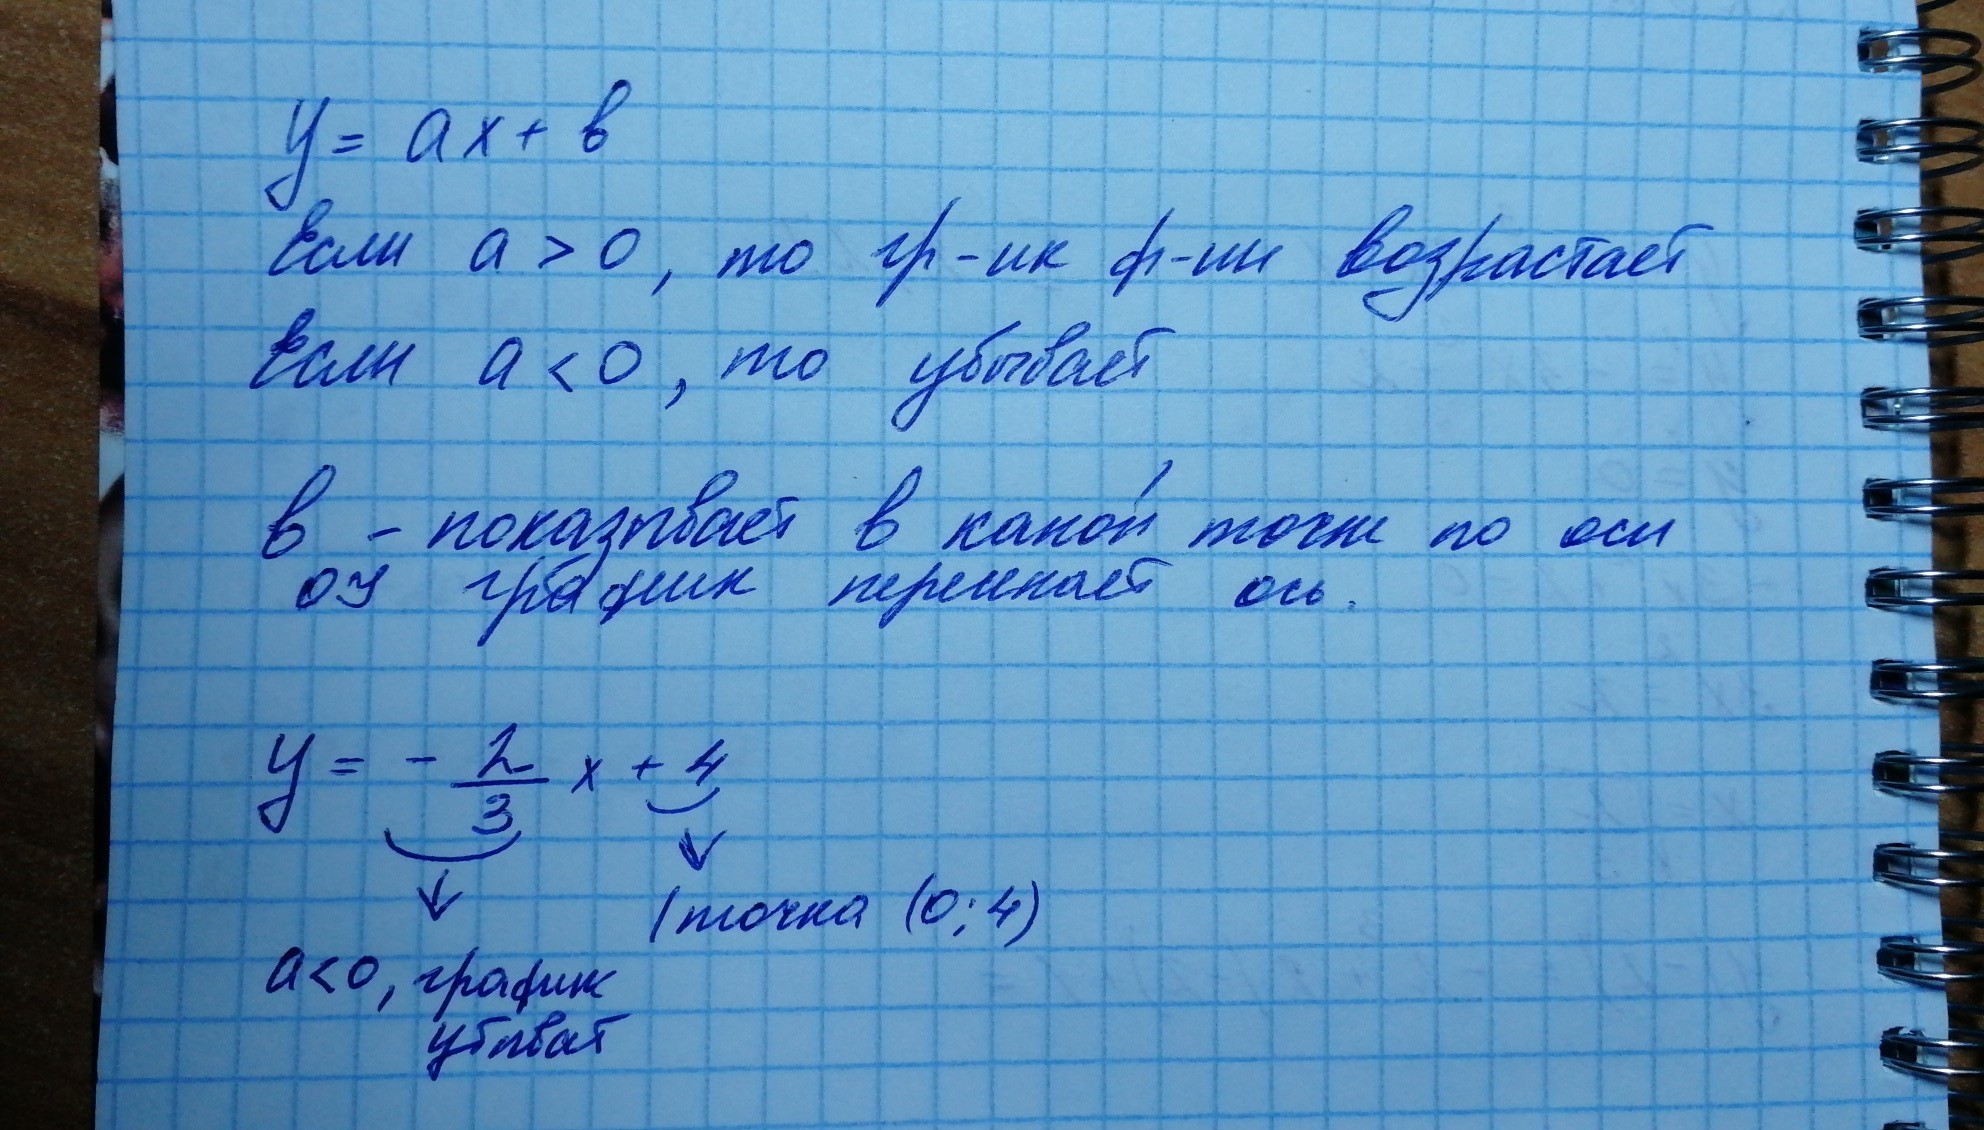 y = ax + в
Если a > 0, то гр-ик ф-ии возрастает
Если a < 0, то убывает
в - показывает в какой точке по оси
оу график пересекает ось.
y = - 2/3 x + 4
точка (0; 4)
a<0, график
убывает